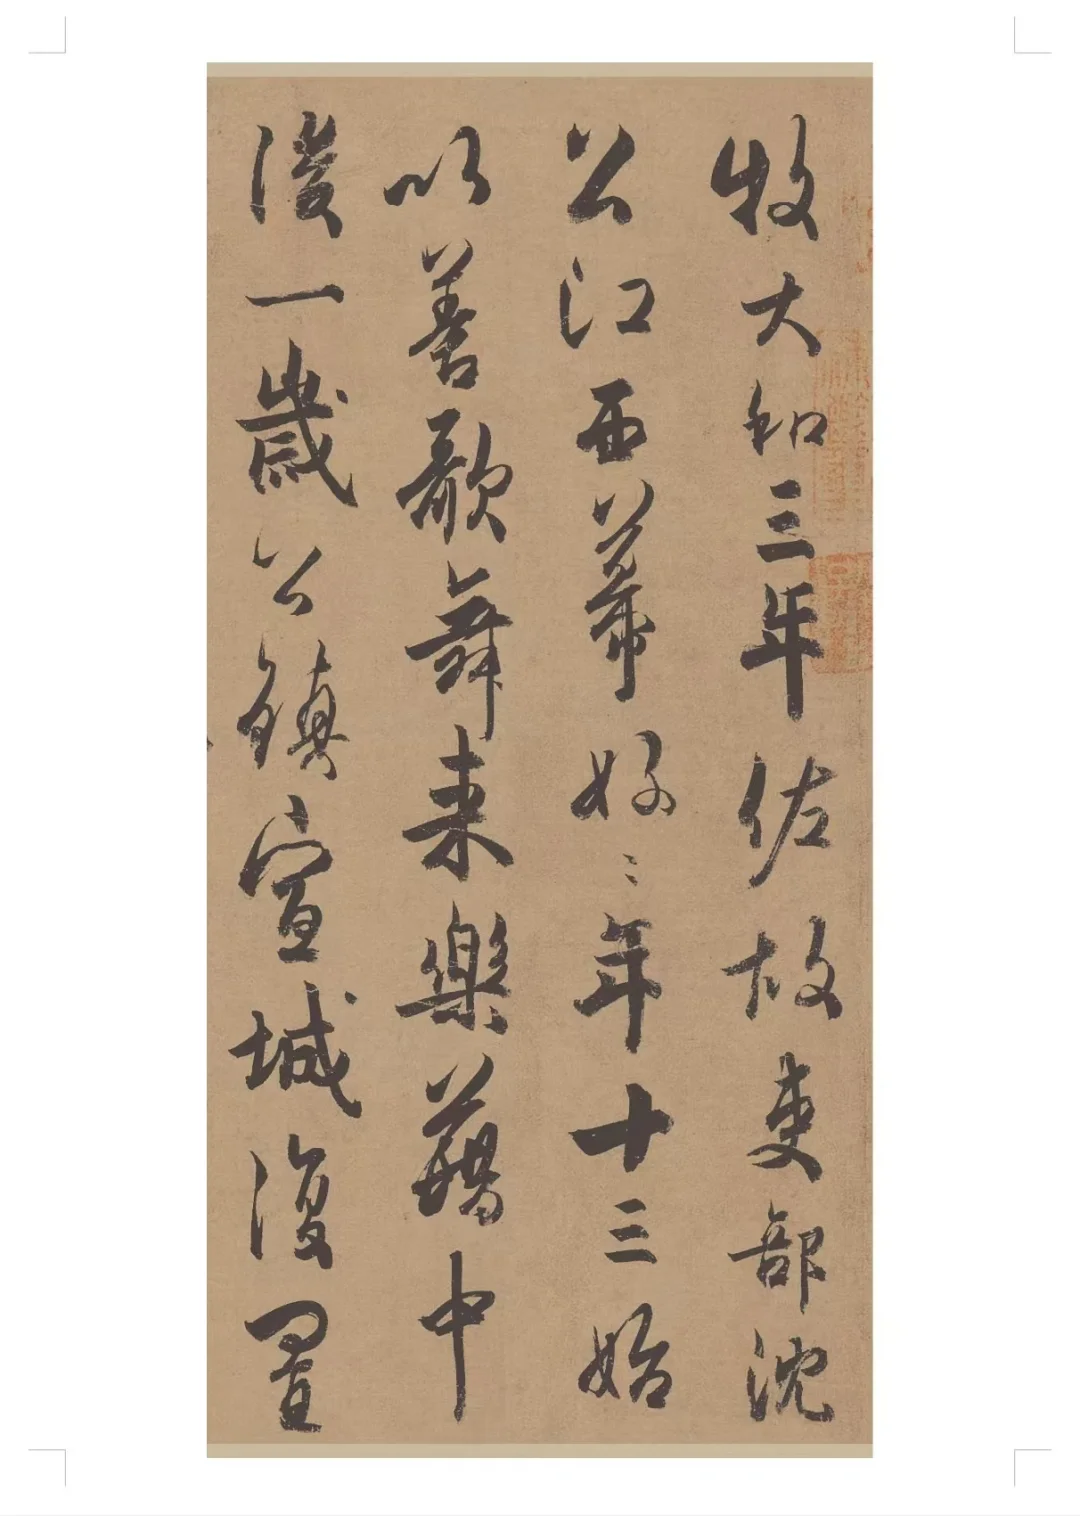 牧大和三年佐故吏部沈
公江西幕好〻年十三始
以善歌舞来樂藉中
後一歲公鎮宣城復置